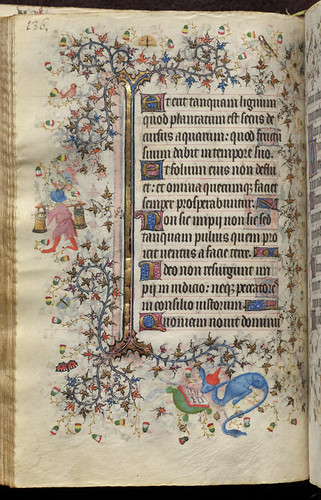 136.
Et erit tanquam lignum
quod plantatum est secus de
cursus aquarum: quod fructū
suum dabit in tempore suo.
Et folium eius non deflu
et: et omnia quecumque faciet
semper prosperabuntur.
Non sic impij non sic sed
tanquam puluis quem pro
icit uentus a facie terre.
Ideo non resurgunt im
pij in iudicio: neque peccatores
in consilio iustorum.
Quoniam nouit dominus